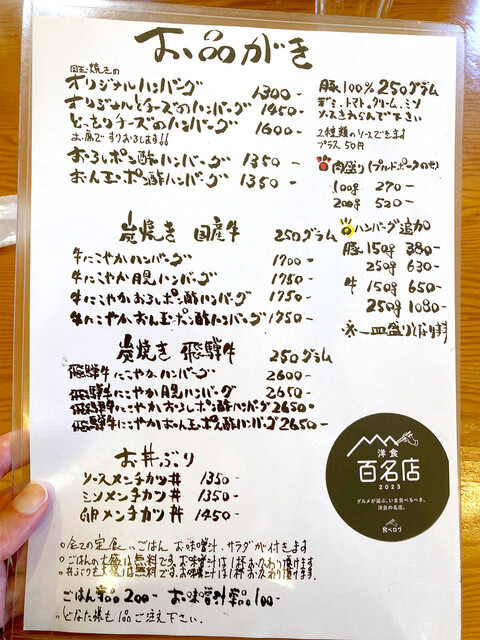 お品がき
オリジナルハンバーグ 1300-
オリジナルとチーズのハンバーグ 1450-
どっさりチーズのハンバーグ 1600-
おろしポン酢ハンバーグ 1350-
おん玉ポン酢ハンバーグ 1350-
豚100% 250グラム
デミ、トマト、クリーム、ミソ
ソースをえらんで下さい
2種類のソースできます
プラス 50円
肉盛り(プルドポークのせ)
100g 270-
200g 520-
ハンバーグ追加
豚 150g 380-
250g 630-
牛 150g 650-
250g 1080-
※一皿盛りとなります
炭焼き 国産牛 250グラム
牛にこやかハンバーグ 1700-
牛にこやか月見ハンバーグ 1750-
牛にこやかおろしポン酢ハンバーグ 1750-
牛にこやかおん玉ポン酢ハンバーグ 1750-
炭焼き 飛騨牛 250グラム
飛騨牛にこやかハンバーグ 2600-
飛騨牛にこやか月見ハンバーグ 2650-
飛騨牛にこやかおろしポン酢ハンバーグ 2650-
飛騨牛にこやかおん玉ポン酢ハンバーグ 2650-
お丼ぶり
ソースメンチカツ丼 1350-
ミソメンチカツ丼 1350-
卵メンチカツ丼 1450-
洋食
百名店
2023
グルメが選ぶ、いま食べるべき、
洋食の名店。
食べログ
全ての定食にごはん お味噌汁、サラダが付きます
ごはんの大盛は無料です。お味噌汁は1杯おかわり頂けます。
丼ぶりも大盛は無料です。お味噌汁は1杯おかわり頂けます。
ごはん単品200- お味噌汁単品100-
どなた様も1品ご注文下さい。